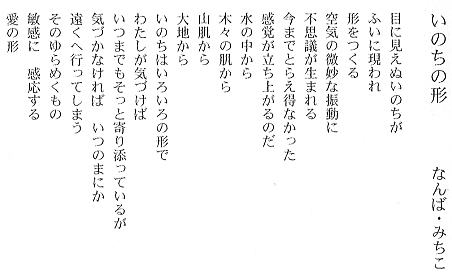 いのちの形
なんば・みちこ
目に見えぬいのちが
ふいに現われ
形をつくる
空気の微妙な振動に
不思議が生まれる
今までとらえ得なかった
感覚が立ち上がるのだ
水の中から
木々の肌から
山肌から
大地から
いのちはいろいろの形で
わたしが気づけば
いつまでもそっと寄り添っているが
気づかなければ　いつのまにか
遠くへ行ってしまう
そのゆらめくもの
敏感に　感応する
愛の形